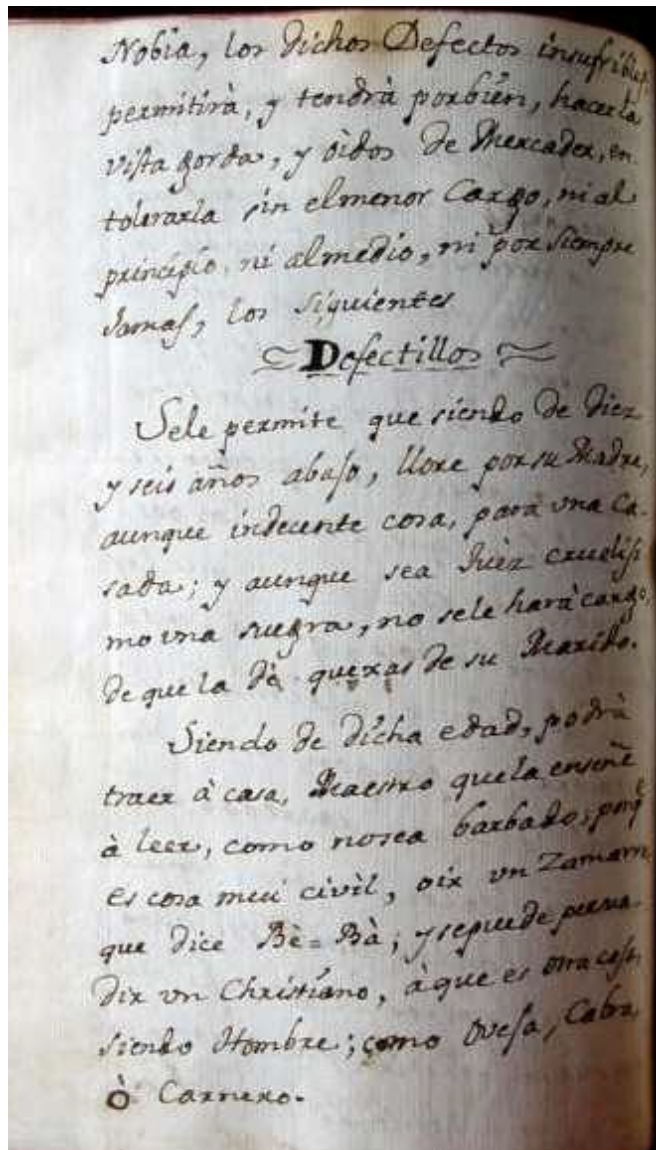 Nobia, los dichos Defectos insufribles
permitirà, y tendrà porbien, hacer la
vista gorda, y òidos de Mercader, en
tolerarla sin elmenor Cargo, ni al
principio, ni almedio, ni por siempre
Jamas, los siguientes
Defectillos
Sele permite que siendo de diez
y seis años abajo, llore por su Madre,
aunque indecente cosa, para vna Ca-
sada; y aunque sea Juèz cruelisi
mo vna suegra, no sele harà cargo,
de que la dè quexas de su Marido.
Siendo de dicha edad, podrà
traer à casa, Maestro que la enseñe
à leer, como nosea barbado; porq̃
es cosa mui civìl, oir vn Zamarro
que dice Bè=Bà; y sepuede persua-
dir vn Christiano, à que es otra cosa,
siendo Hombre; como Oveja, Cabra,
ò Carnero.